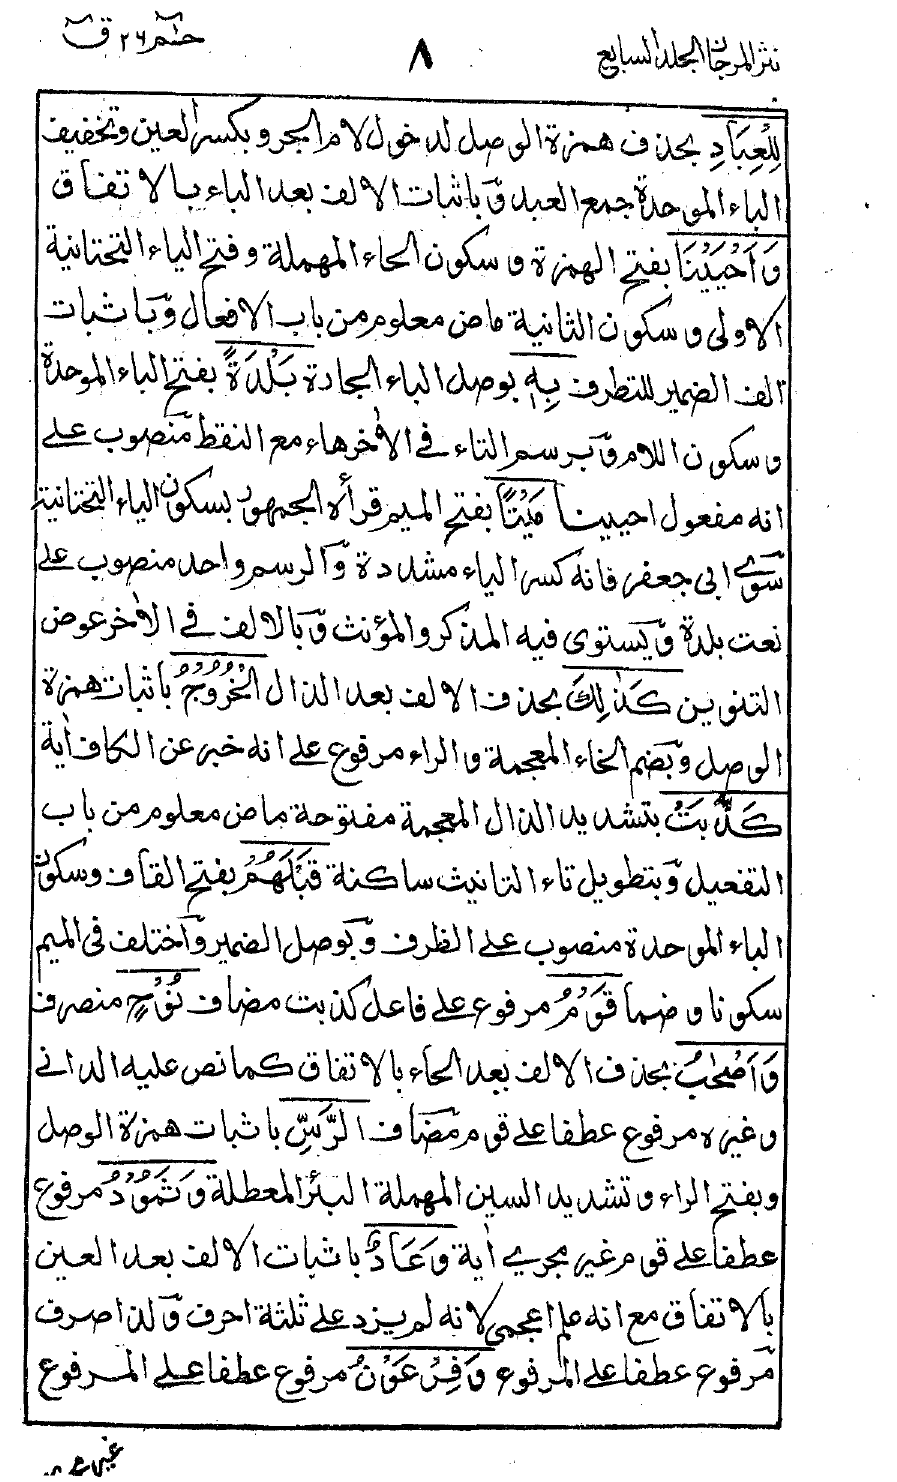 نثر المرجان المجلد السابع
٨
حٰم ٢٦ ق
لِلْعِبَادِ بحذف همزة الوصل لدخول لام الجر و بكسر العين وتخفيف
الباء الموحدة جمع العبد وباثبات الالف بعد الباء بالاتفاق
وَاَحْيَيْنَا بفتح الهمزة وسكون الحاء المهملة وفتح الياء التحتانية
الاولى وسكون الثانية ماض معلوم من باب الافعال وباثبات
الف الضمير للتطرف بِهٖ بوصل الباء الجارة بَلْدَةً بفتح الباء الموحدة
وسكون اللام وبرسم التاء في الاٰخر هاء مع النقط منصوب على
انه مفعول احيينا مَيْتًا بفتح الميم قرأه الجمهور بسكون الياء التحتانية
سوى ابى جعفر فانه كسر الياء مشددة والرسم واحد منصوب على
نعت بلدة ويستوى فيه المذكر والمؤنث وبالالف في الاٰخر عوض
التنوين كَذٰلِكَ بحذف الالف بعد الذال الْخُرُوْجُ باثبات همزة
الوصل وبضم الخاء المعجمة والراء مرفوع على انه خبر عن الكاف اٰية
كَذَّبَتْ بتشديد الذال المعجمة مفتوحة ماض معلوم من باب
التفعيل وبتطويل تاء التانيث ساكنة قَبْلَهُمْ بفتح القاف وسكون
الباء الموحدة منصوب على الظرف وبوصل الضمير واختلف فى الميم
سكونا وضما قَوْمُ مرفوع على فاعل كذبت مضاف نُوْحٍ منصرف
وَاَصْحٰبُ بحذف الالف بعد الحاء بالاتفاق كما نص عليه الدانى
وغيره مرفوع عطفا على قوم مضاف الرَّسِّ باثبات همزة الوصل
وبفتح الراء وتشديد السين المهملة البئر المعطلة وَثَمُوْدُ مرفوع
عطفا على قوم غير مجرى اٰية وَعَادٌ باثبات الالف بعد العين
بالاتفاق مع انه علم اعجمى لانه لم يزد على ثلثة احرف ولذا صرف
مرفوع عطفا على المرفوع وَفِرْعَوْنُ مرفوع عطفا على المرفوع